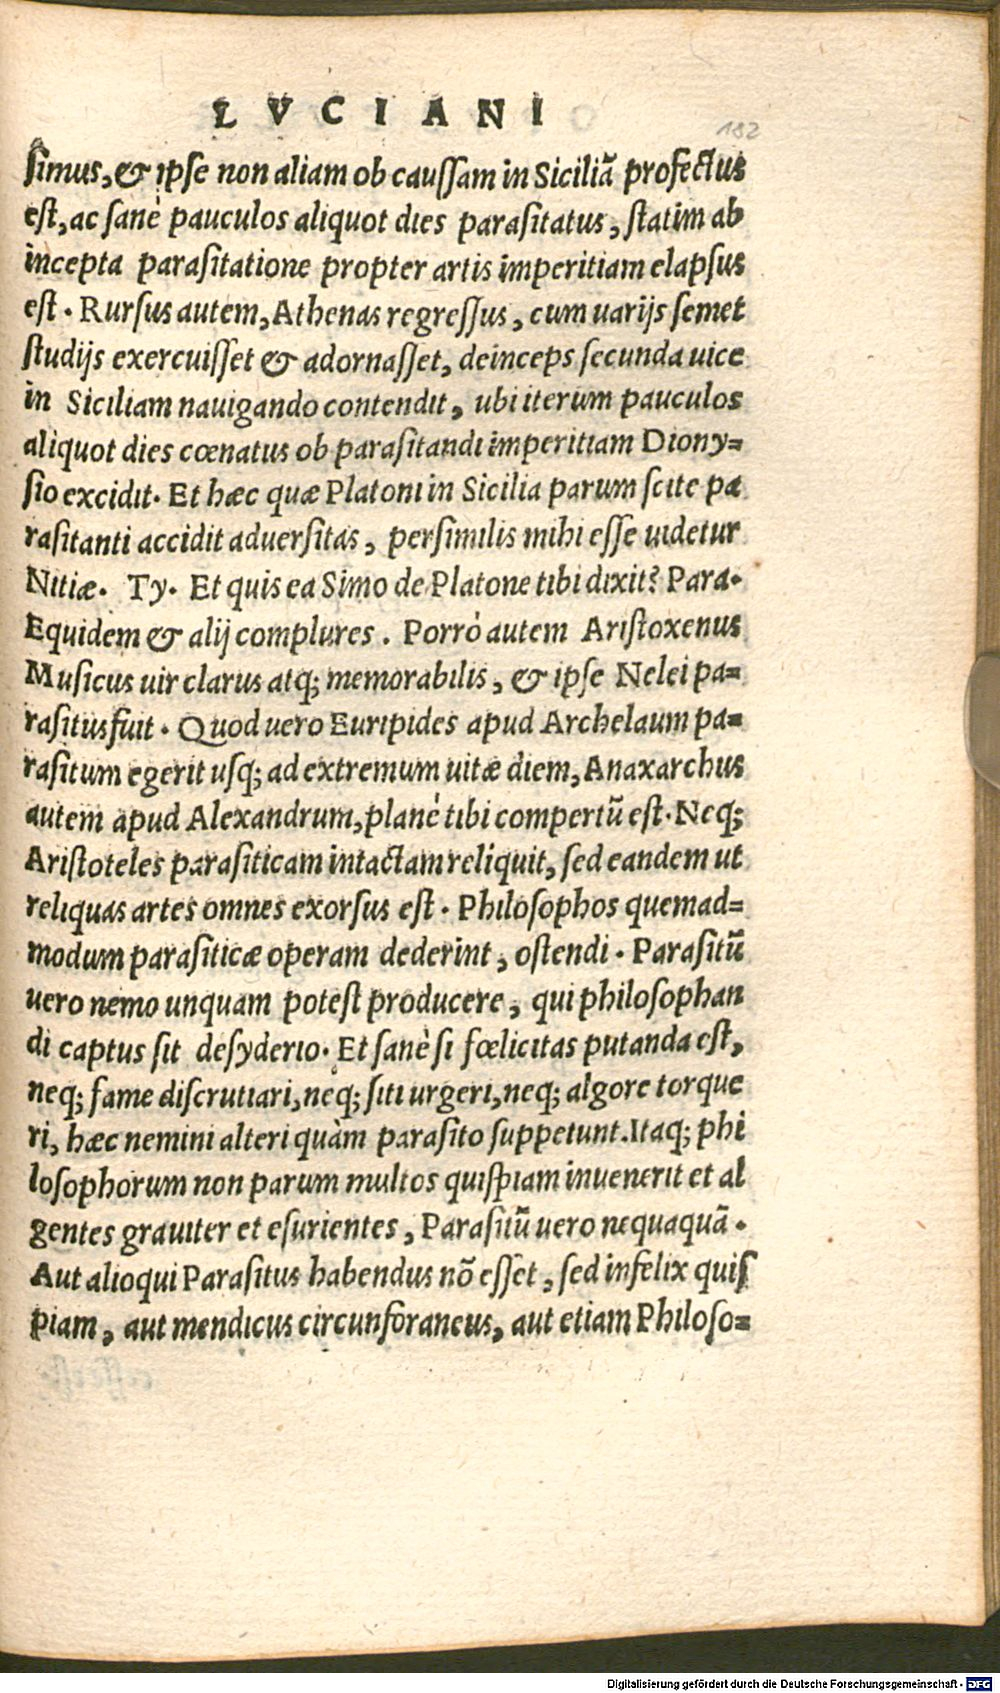 LVCIANI
182
simus, & ipse non aliam ob caussam in Siciliã profectus
est, ac sanè pauculos aliquot dies parasitatus, statim ab
incepta parasitatione propter artis imperitiam elapsus
est. Rursus autem, Athenas regressus, cum uarijs semet
studijs exercuisset & adornasset, deinceps secunda uice
in Siciliam nauigando contendit, ubi iterum pauculos
aliquot dies cœnatus ob parasitandi imperitiam Diony=
sio excidit. Et hæc quæ Platoni in Sicilia parum scite pa
rasitanti accidit aduersitas, persimilis mihi esse uidetur
Nitiæ. Ty. Et quis ea Simo de Platone tibi dixit? Para.
Equidem & alij complures. Porrò autem Aristoxenus
Musicus uir clarus atq; memorabilis, & ipse Nelei pa=
rasitus fuit. Quod uero Euripides apud Archelaum pa=
rasitum egerit usq; ad extremum uitæ diem, Anaxarchus
autem apud Alexandrum, planè tibi compertũ est. Neq;
Aristoteles parasiticam intactam reliquit, sed eandem ut
reliquas artes omnes exorsus est. Philosophos quemad=
modum parasiticæ operam dederint, ostendi. Parasitũ
uero nemo unquam potest producere, qui philosophan
di captus sit desyderio. Et sanè si fœlicitas putanda est,
neq; fame discrutiari, neq; siti urgeri, neq; algore torque
ri, hæc nemini alteri quàm parasito suppetunt. Itaq; phi
losophorum non parum multos quispiam inuenerit et al
gentes grauiter et esurientes, Parasitũ uero nequaquã.
Aut alioqui Parasitus habendus nõ esset, sed infelix quis
piam, aut mendicus circunforaneus, aut etiam Philoso=
Digitalisierung gefördert durch die Deutsche Forschungsgemeinschaft - DFG